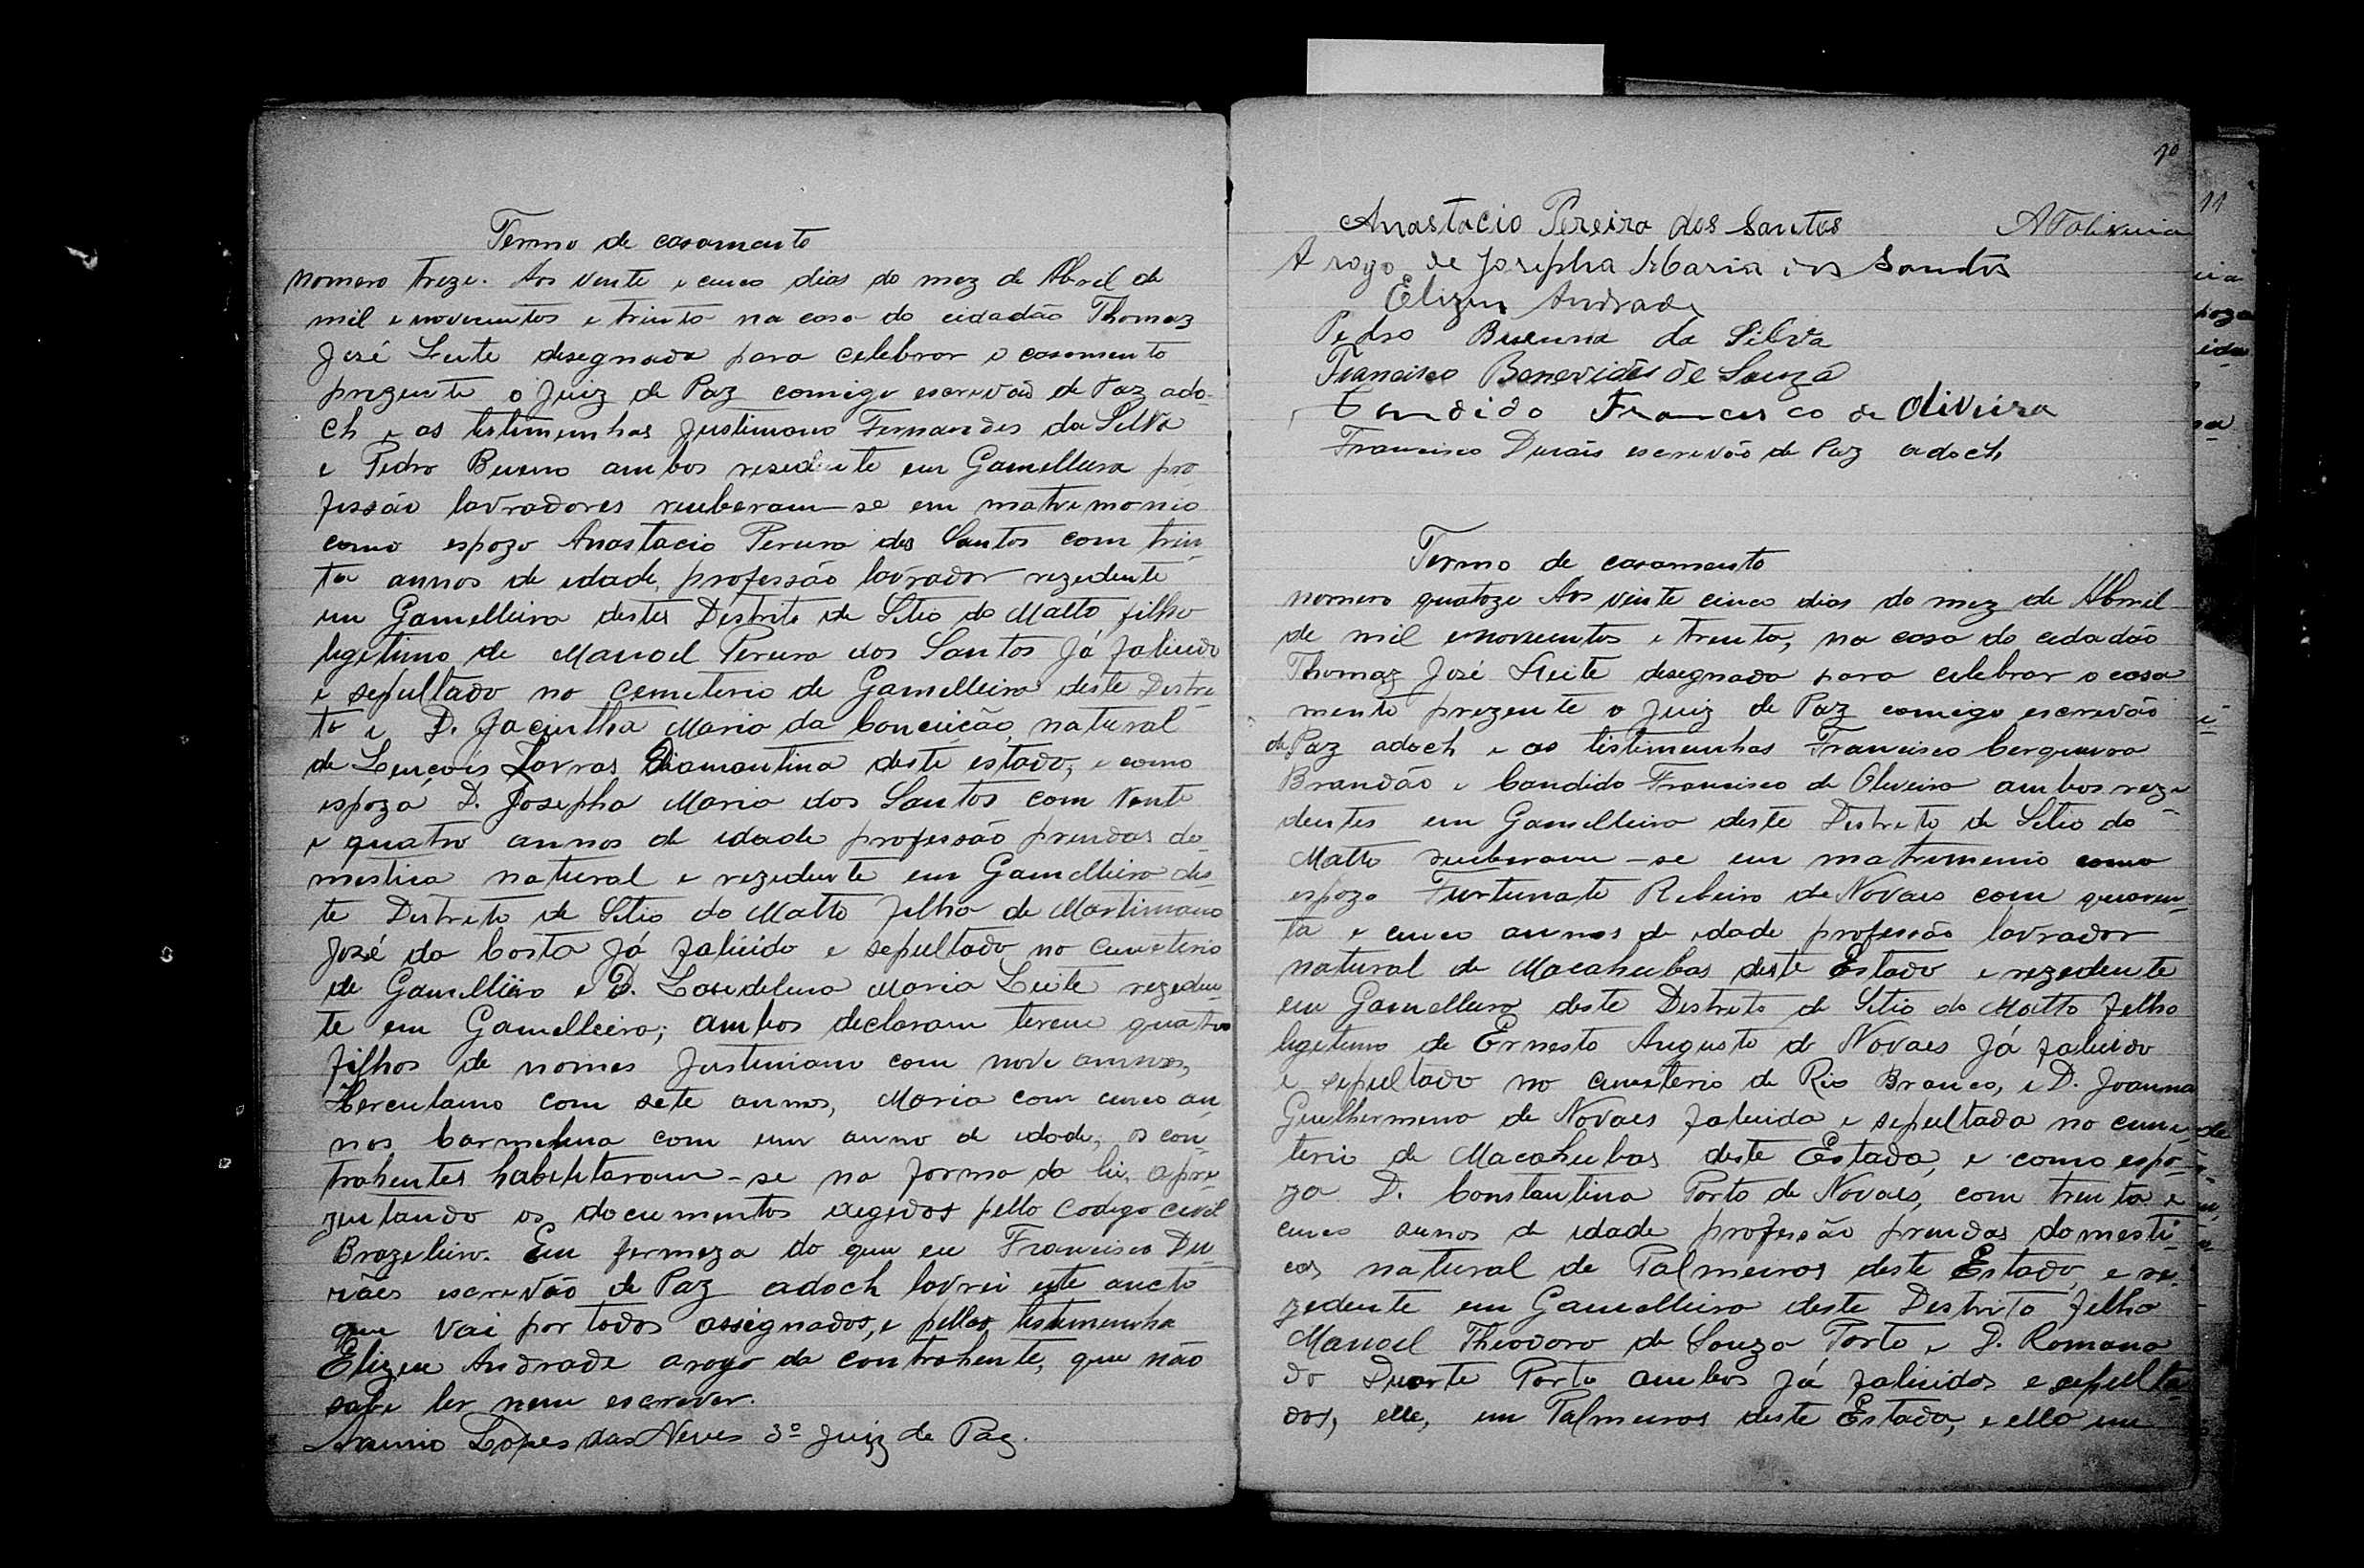 Termo de casamento
nomero treze. Aos vinte e cinco dias do mez de Abril de
mil e novecentos e trinta na casa do cidadão Thomaz
José Leite desegnada para celebrar o casamento
prezente o Juiz de Paz comigo escrevão de Paz ado-
ch e as testimunhas Justiniano Fernandes da Silva
e Pedro Bueno ambos residente em Gamelleira pro
fissão lavradores receberam-se em matrimonio
como espozo Anastacio Pereira dos Santos com trin
ta annos de idade, profissão lavrador rezidente
em Gamelleira destes Destrito de Sitio do Matto filho
legitimo de Manoel Pereira dos Santos Já falicido
e sepultado no cemeterio de Gamelleira deste Destri
to e D. Jacintha Maria da Conceição, natural
de Lençois Lavras Diamantina deste estado, e como
espoza D. Josepha Maria dos Santos com Vinte
e quatro annos de idade profissão prendas do-
mestica natural e rezidente em Gamelleira des-
te Destrito de Sitio do Matto filha de Martiniano
José da Costa Já falicido e sepultado no cemeterio
de Gamelleira e D. Maria Leite reziden-
te em Gamelleira; ambos declaram terem quatro
filhos de nomes Justiniano com nove annos,
Herculano com sete annos, Maria com cinco an
nos Carmelina com um anno de idade, os con-
trahentes habilitaram-se na forma da lei, apre
zentando os documentos exegidos pello Codigo civil
Brazeleiro. Em fermeza do que eu Francisco Du-
rães escrevão de Paz adoch lavrei este aucto
que vai por todos assignados, e pellas testimunha
Elizeu Andrade arogo da contrahente, que não
sabe ler nem escrever.
Lopes das Neves 3º Juiz de Paz.
10
Anastacio Pereira dos Santos
A rogo de Josepha Maria dos Santos
Elizeu Andrade
Pedro Buenna da Silva
Francisco Benevides de Souza
Candido Francisco de Oliveira
Francisco Durães escrevão de Paz adoch
Termo de casamento
nomero quatoze Aos vinte cinco dias do mez de Abril
de mil e novecentos e trenta, na casa do cidadão
Thomaz José Leite desegnada para celebrar o casa
mento prezente o Juiz de Paz comigo escrevão
de Paz adoch e as testimunhas Francisco Cerqueira
Brandão e Candido Francisco de Oliveira ambos rezi
dentes em Gamelleira deste Destrito de Sitio do
Matto receberam-se em matrimonio como
espozo Furtunato Ribeiro de Novaes com quaren-
ta e cinco annos de idade profissão lavrador
natural de Macahubas deste Estado e rezidente
em Gamelleira deste Destrito de Sitio do Matto filho
legitimo de Ernesto Augusto de Novaes Já falicido
e sepultado no cemeterio de Rio Branco, e D. Joanna
Guilhermina de Novaes falicida e sepultada no ceme-
terio de Macahubas deste Estado, e como espo-
za D. Constantina Porto de Novaes, com trinta e
cinco annos de idade profissão prendas domesti-
cas natural de Palmeiras deste Estado, e re-
zidente em Gamelleira deste Destrito filha
Manoel Theodoro de Souza Porto e D. Romana
do Duarte Porto ambos Já falicidos e sepulta
dos, elle, em Palmeiras deste Estado, e ella em
11